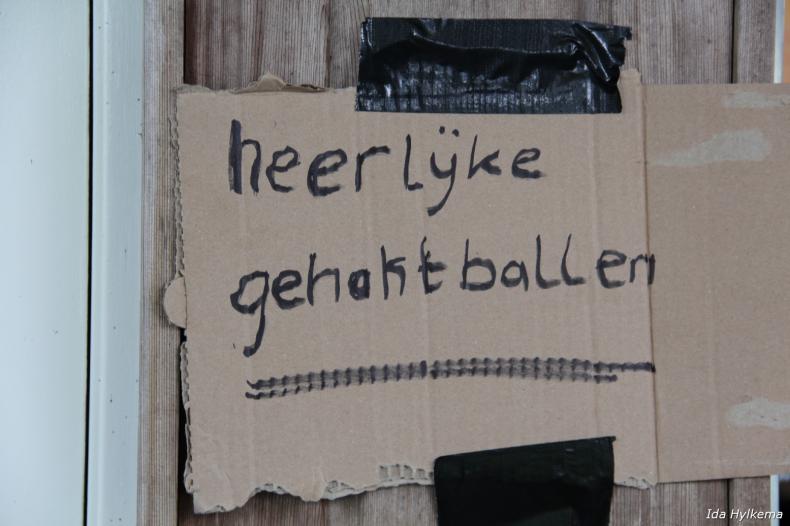 heerlijke
gehaktballen
Ida Hylkema